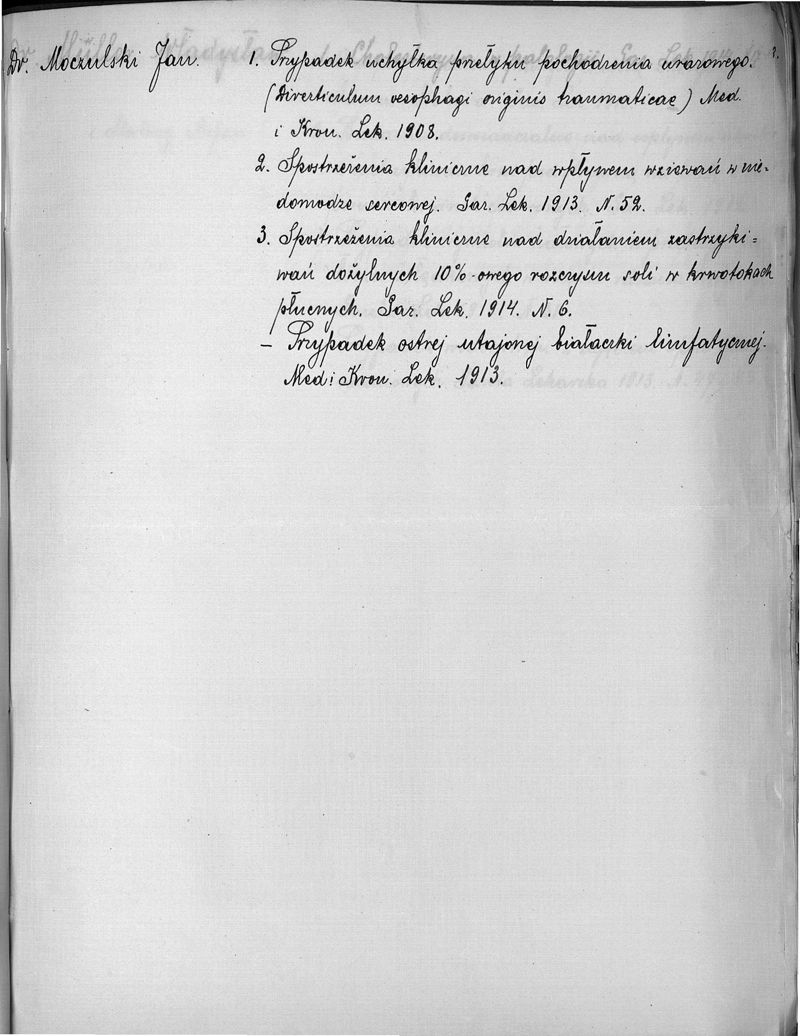 Dr. Moczulski Jan. 1. Przypadek uchyłka przełyku pochodzenia urazowego.
(Diverticulum oesophagi originis traumaticae) Med.
i Kron. Lek. 1908.
2. Spostrzeżenia kliniczne nad wpływem wziewań w nie-
domodze sercowej. Gaz. Lek. 1913. N. 52.
3. Spostrzeżenia kliniczne nad działaniem zastrzyki=
wań dożylnych 10%-owego rozczynu soli w krwotokach
płucnych. Gaz. Lek. 1914. N. 6.
– Przypadek ostrej utajonej białaczki limfatycznej.
Med i Kron. Lek. 1913.